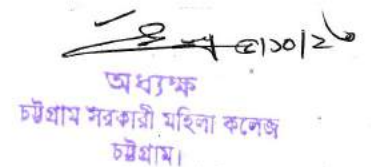 ৫|১০|২৬
অধ্যক্ষ
চট্টগ্রাম সরকারী মহিলা কলেজ
চট্টগ্রাম।